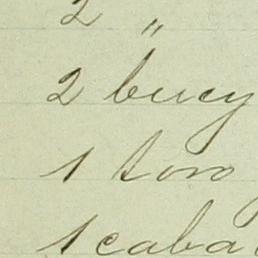 2 "
2 bucy
1 toro
1 caba